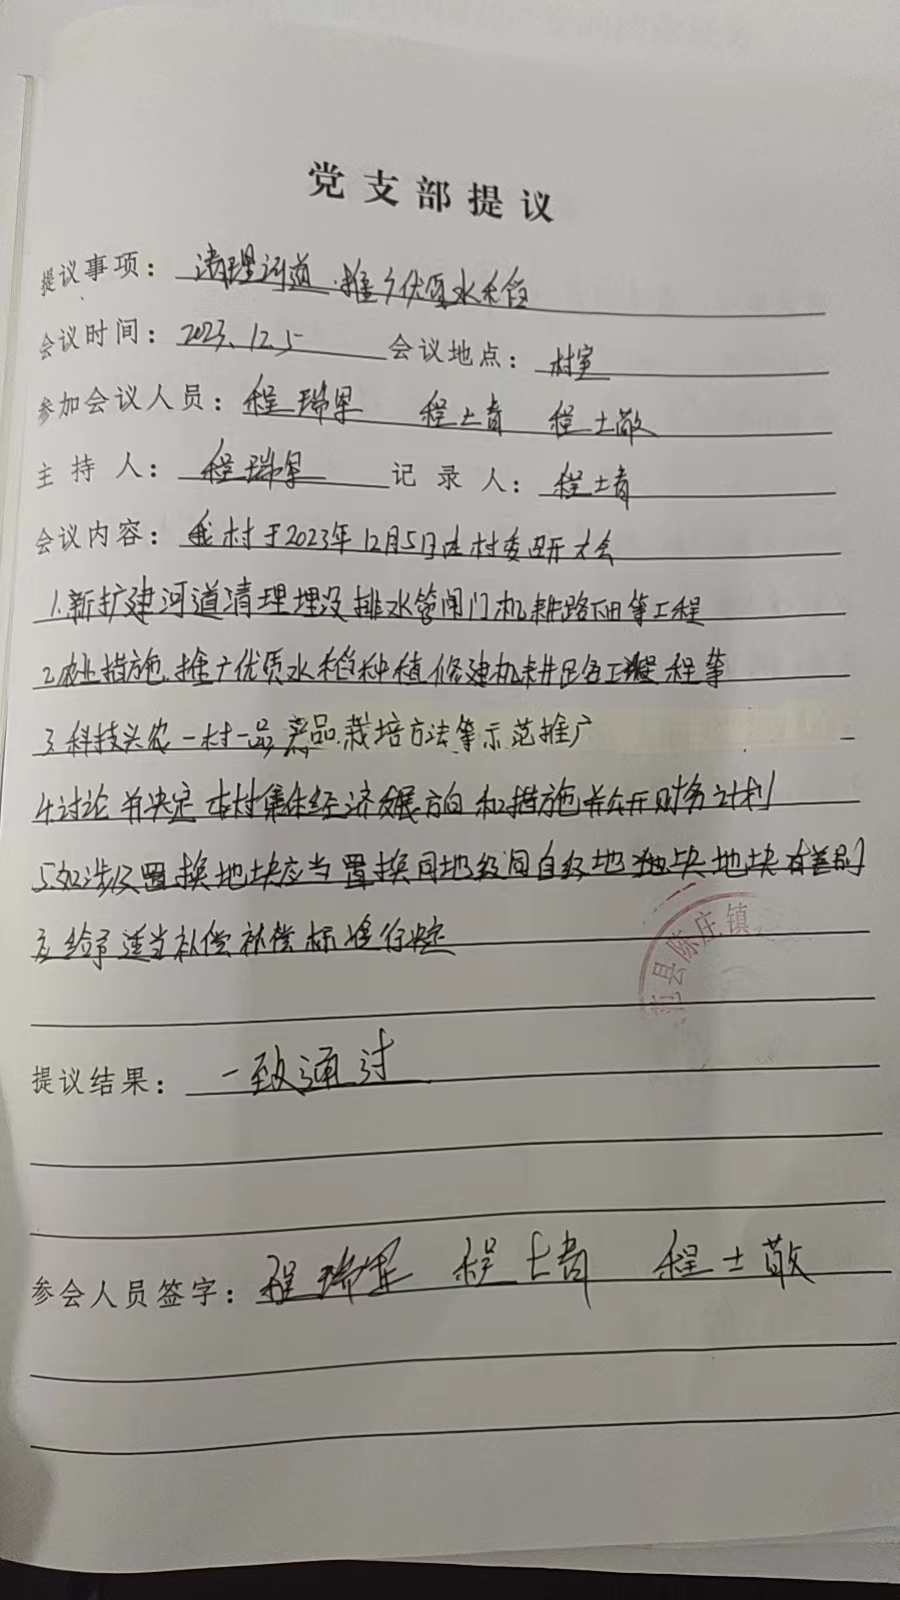 党支部提议
提议事项：清理河道.推广优质水稻
会议时间：2023.12.5 会议地点：村室
参加会议人员：程瑞军 程士青 程士敬
主持人：程瑞军 记录人：程士青
会议内容：我村于2023年12月5日在村委召开大会
1.新扩建河道清理埋设排水管闸门机耕路 等工程
2.农业措施.推广优质水稻种植修建机耕路工程等
3.科技兴农一村一品 品栽培方法等示范推广
4.讨论并决定本村集体经济发展方向和措施并公开财务计划
5.如涉及置换地块应当置换同地级同自级地 块地块有差别
应给予适当补偿补偿标准 行决定
县陈庄镇
提议结果：一致通过
参会人员签字：程瑞军 程士青 程士敬